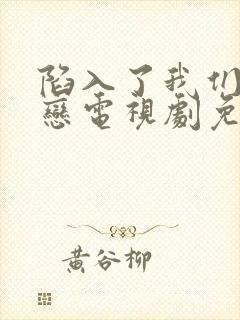 陷入了我们
戀電視劇免
黃谷柳